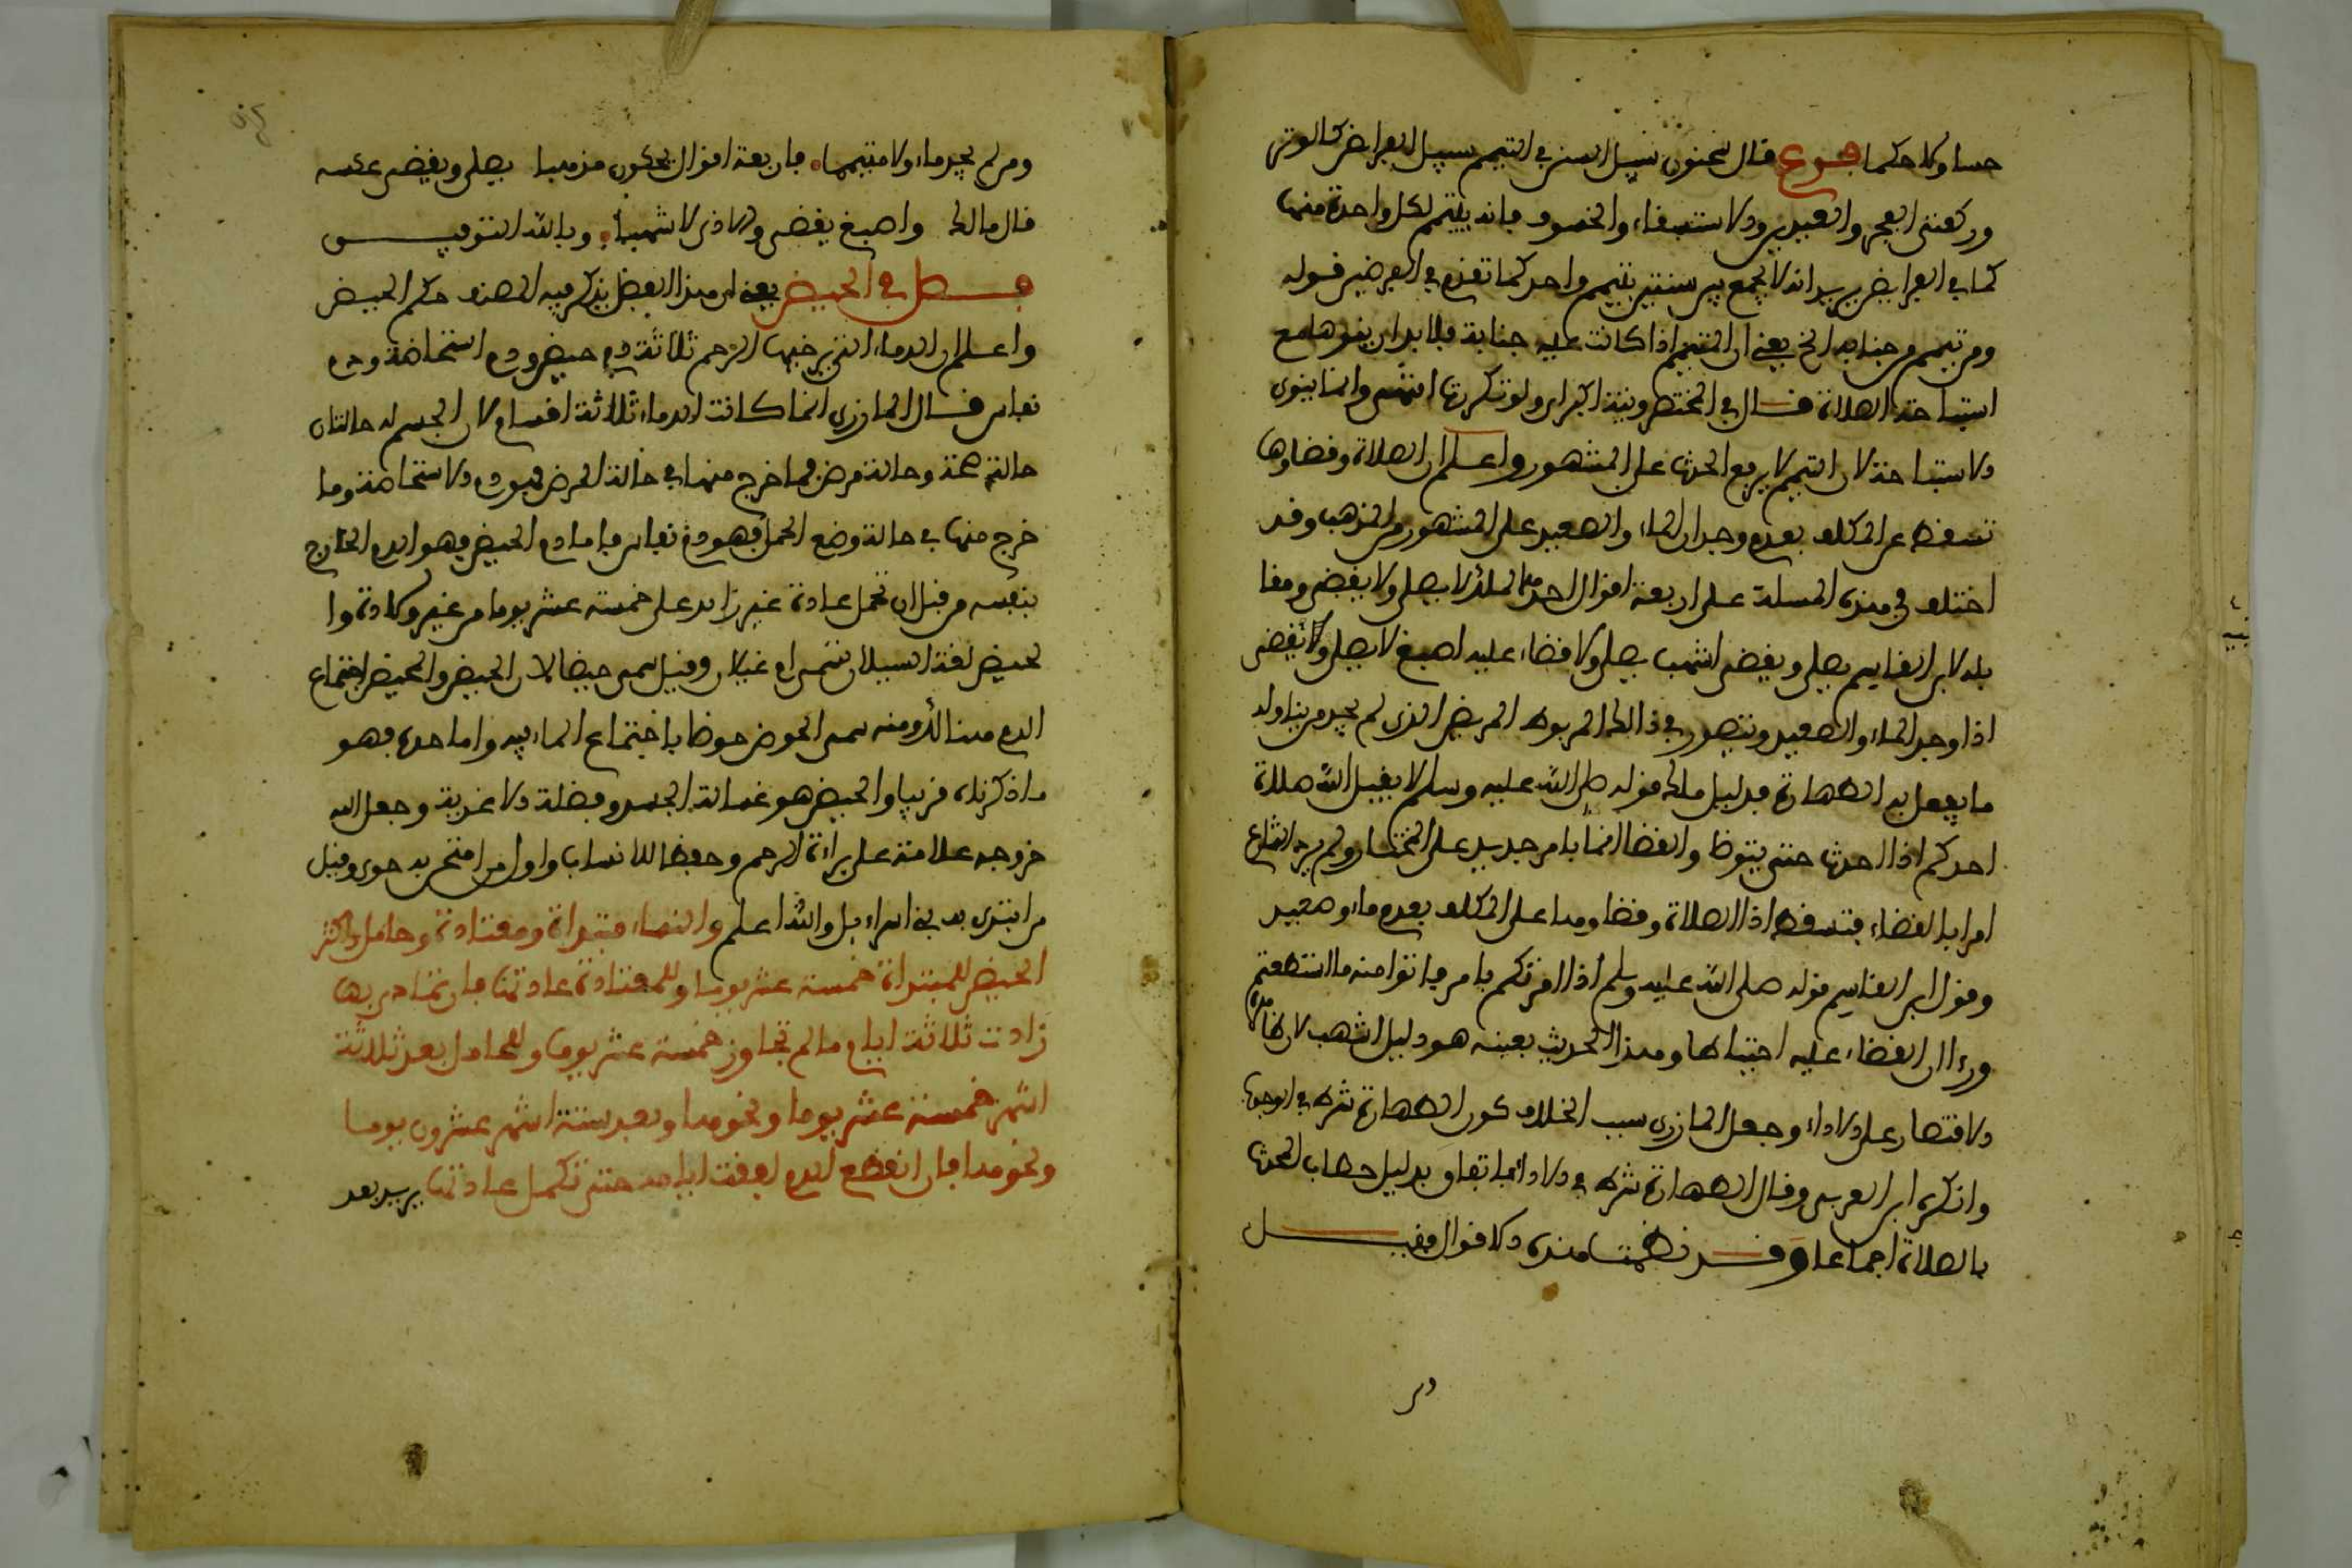 حسا ولا حكما فرع قال سحنون سبيل السنن في التيمم سبيل الفرايض كالوتر
وركعتي الفجر والعيدين والاستسقاء والخسوف فانه يتيمم لكل واحدة منها
كما في الفرايض يريد انه لا يجمع بين سنتين بتيمم واحد كما تقدم في الفرضين قوله
ومن تيمم من جنابة الخ يعني ان المتيمم اذا كانت عليه جنابة فلا بد ان ينوها مع
استباحة الصلاة قال في المختصر ونية اكبر ان ولو تكررت انتهى وانما ينوى
الاستباحة لان التيمم لا يرفع الحدث على المشهور واعلم ان الصلاة وقضاوها
تسقط عن المكلف بعدم وجدان الماء والصعيد على المشهور من المذهب وقد
اختلف في هذه المسلة على اربعة اقوال احدها لملك لا يصلي ولا يقضي ومقا
بله لابن القاسم يصلي ويقضي اشهب يصلي ولا قضاء عليه اصبغ لا يصلي ولا يقضى
اذا وجد الماء والصعيد ويتصور في ذالك المربوط المريض الذى لم يجد من يناوله
ما يفعل به الطهارة فدليل ملك قوله صلى الله عليه وسلم لا يقبل الله صلاة
احدكم اذا احدث حتى يتوظا والقضا انما بامر جديد على المختار ولم يرد الشارع
امرا بالقضاء فتسقط اذا الصلاة وقضاوها على المكلف بعدم ماء وصعيد
وقول ابن القاسم قوله صلى الله عليه وسلم اذا امرتكم بامر فاتوا منه ما استطعتم
ورءا ان القضاء عليه احتياطا وهذا الحديث بعينه هو دليل اشهب لان ظاهره
الاقتصار على الاداء وجعل المازرى سبب الخلاف كون الطهارة شرط في الوجوب
وانكره ابن العربي وقال الطهارة شرط في الاداء اتفاق بدليل خطاب المحدث
بالصلاة اجماعا وقد نظمت هذه الاقوال فقيل
ومن لم يجد ماء ولا متيمما فاربعة اقوال يحكون مذهبا يصلي ويقضي عكسه
قال مالك واصبغ يقضى والاذى لاشهبا وبالله التوفيـــق
فصل في الحيض يعني ان هذا الفصل يذكر فيه المصنف حكم الحيض
واعلم ان الدماء التي يرخيها الرحم ثلاثة دم حيض ودم استحاضة ودم
نفاس قال المازرى انما كانت الدماء ثلاثة اقسام لان الجسم له حالتان
حالة صحة وحالة مرض فما خرج منها في حالة المرض فهو دم الاستحاضة وما
خرج منها في حالة وضع الحمل فهو دم نفاس فاما دم الحيض فهو الدم الخارج
بنفسه من قبل ان تحمل عادة غير زايد على خمسة عشر يوما من غير ولادة وا
لحيض لغة السيلان وقيل سمى حيضا لان الحيض والمحيض اجتماع
الدم هنالك ومنه سمى الحوض حوظا باجتماع الماء فيه واما حده فهو
ماذكرناه قريبا والحيض هو غسالة الجسد وفضلة الاغذية وجعل الله
خروجه علامة على براءة الرحم وحفظا للانساب واول من امتحن به حوى وقيل
من ابتدى به بني اسراءيل والله اعلم والنساء مبتداة ومعتادة وحامل واكثر
الحيض للمبتداة خمسة عشر يوما وللمعتادة عادتها فان تمادى بها
زادت ثلاثة ايام مالم تجاوز خمسة عشر يوما وللحامل بعد ثلاثة
اشهر خمسة عشر يوما ونحوها وبعد ستة اشهر عشرون يوما
ونحوها فان انقطع الدم لفقت ايامه حتى تكمل عادتها يريد بعد